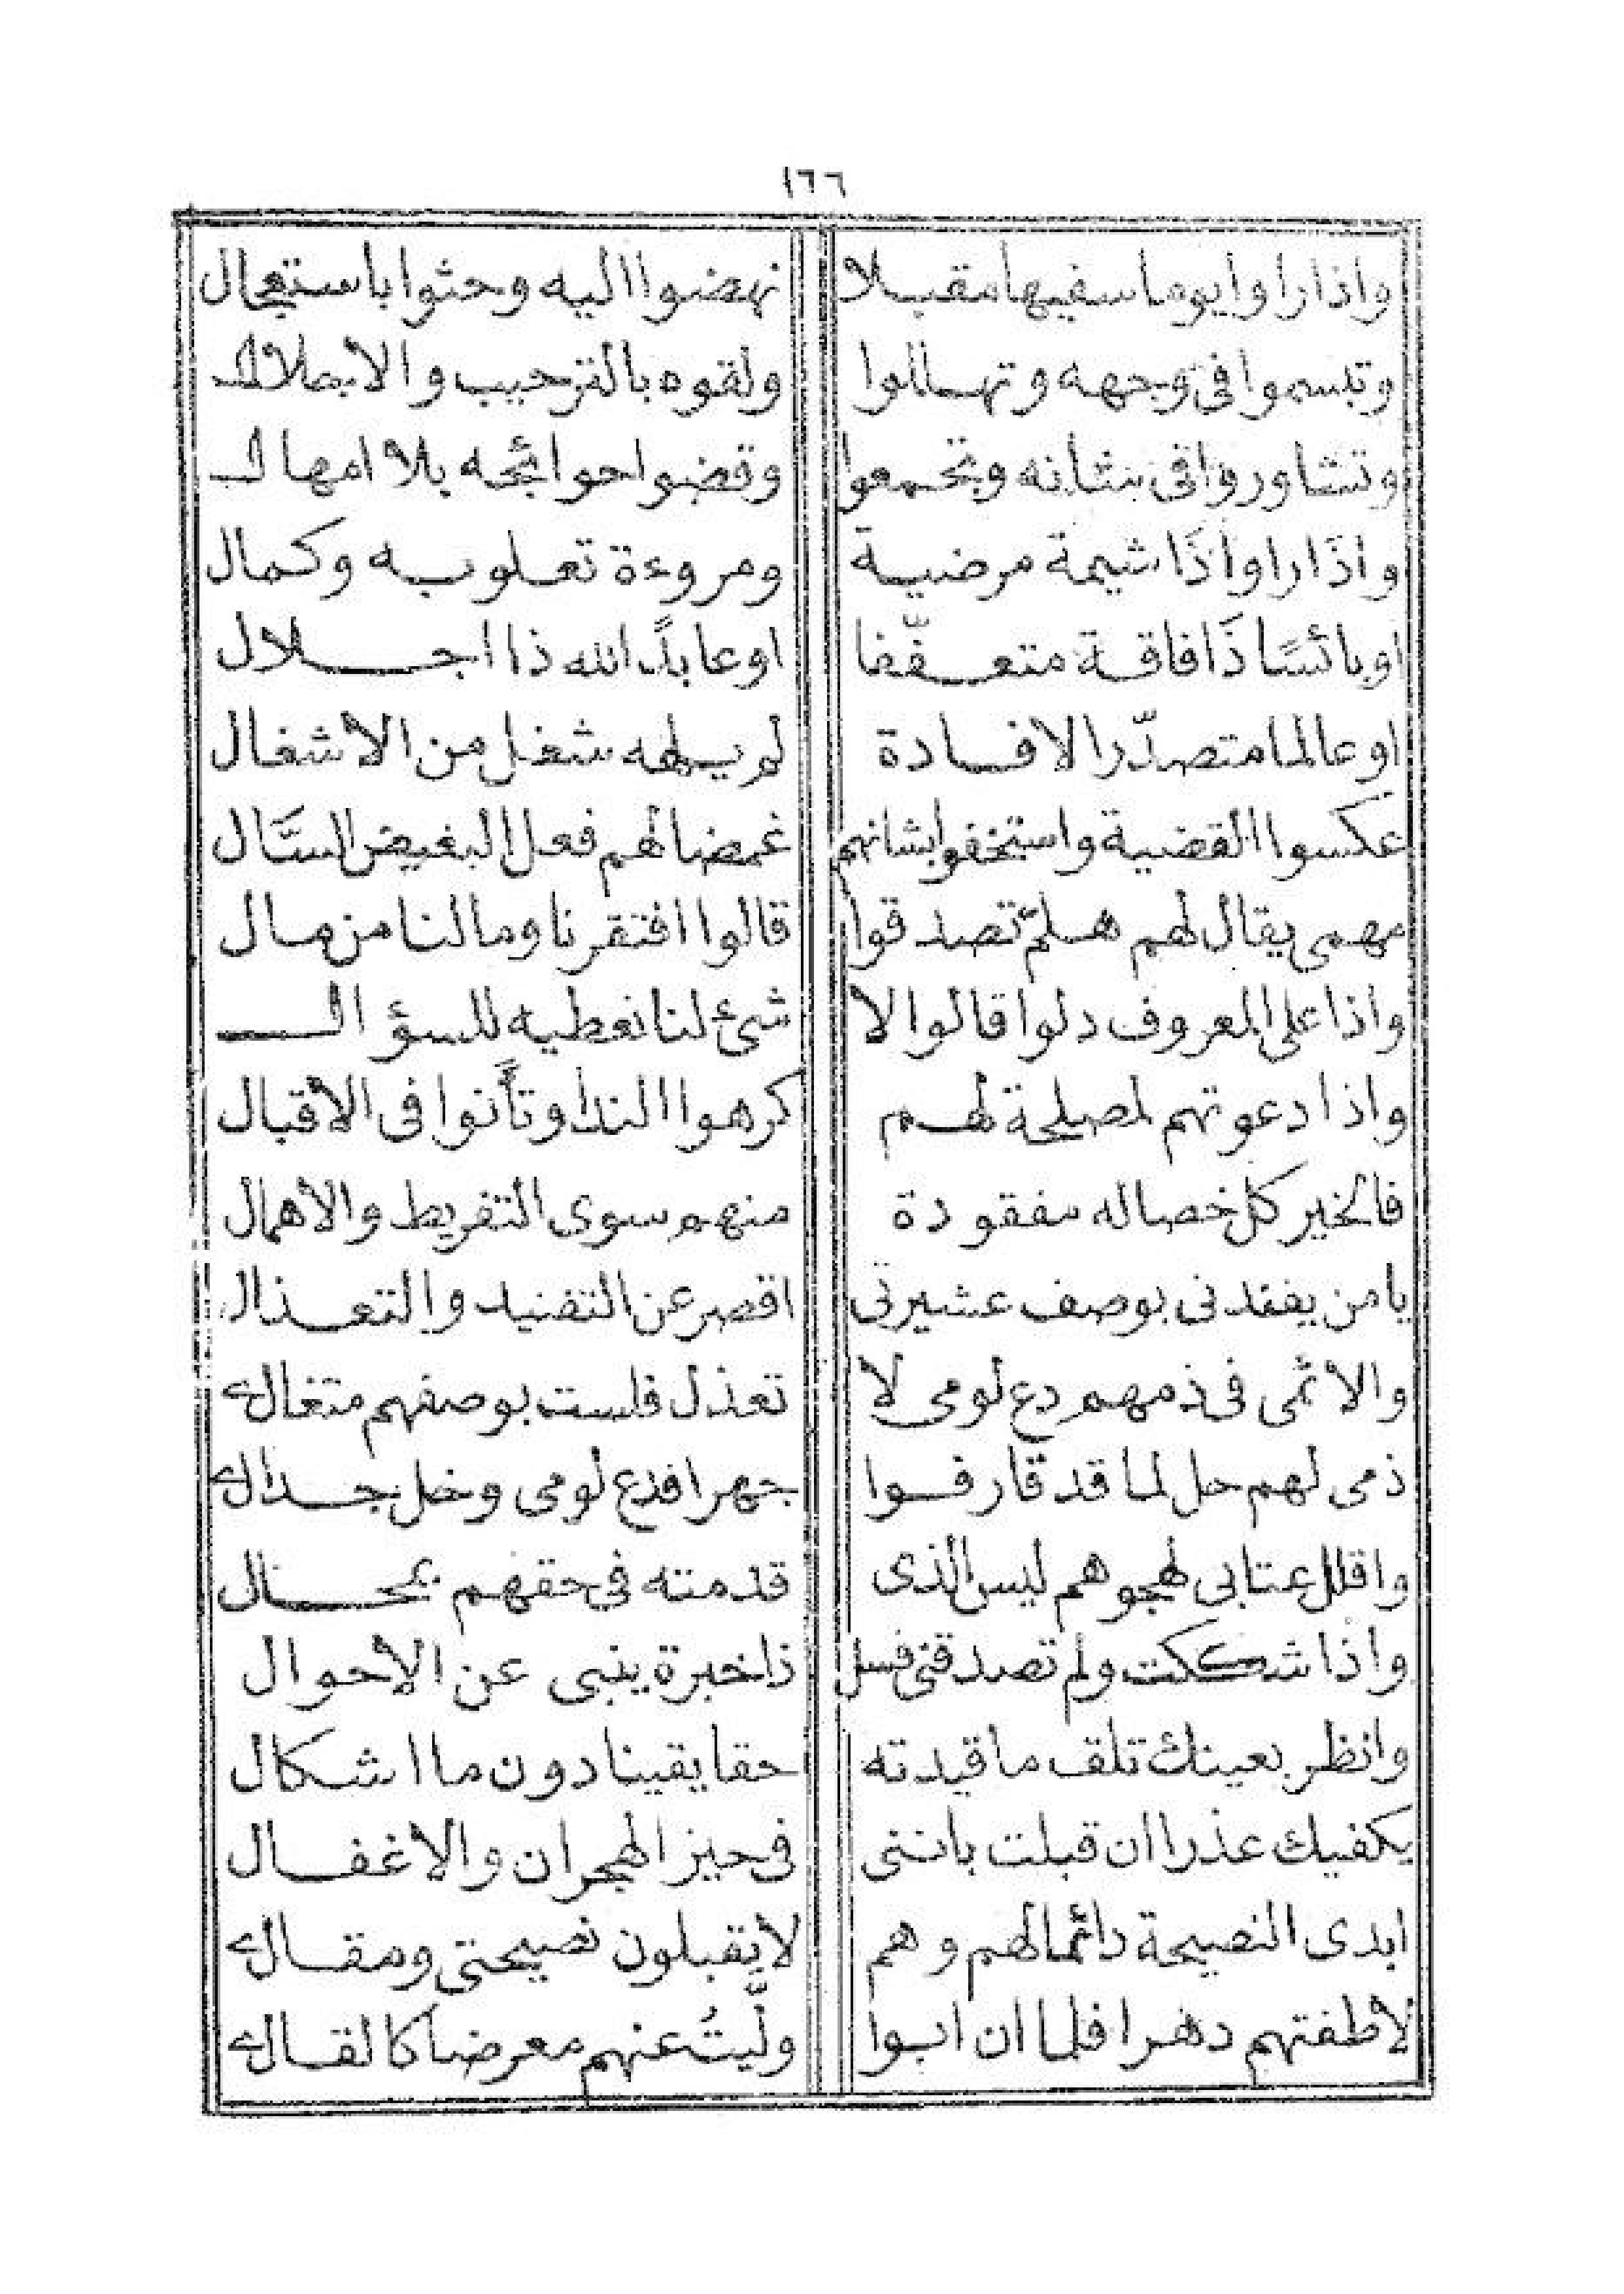 ١٦٦
واذا راوا يوما سفيها مقبلا نهضوا اليه وحثوا باستعجال
وتبسموا فى وجهه وتهللوا ولقوه بالترحيب والاجلال
وتشاوروا فى شانه وتجمعوا وقضوا حوائجه بلا امهال
واذا راوا ذا شيمة مرضية ومروءة تعلو به وكمال
او بائسًا ذا فاقة متعففا او عابدًا لله ذا اجلال
او عالما متصدّرا لافادة لم يلهه شغل من الاشغال
عكسوا القضية واستخفوا بشانهم غمضا لهم فعل البغيض السّال
مهمى يقال لهم هلمّ تصدقوا قالوا افتقرنا وما لنا من مال
واذا على المعروف دلوا قالوا لا شئ لنا نعطيه للسؤال
واذا دعوتهم لمصلحة لهم كرهوا الندا وتأنوا فى الاقبال
فالخير كل خصاله مفقودة منهم سوى التفريط والاهمال
يا من يفندنى بوصف عشيرتى اقصر عن التفنيد والتعذال
والائمى فى ذمهم دع لومى لا تعذل فلست بوصفهم متغالى
ذمى لهم حل لما قد قارفوا جهرا فدع لومى وخل جدالى
واقلل عتابى لهجوهم ليس الذى قدمته فى حقهم بمحال
واذا شككت ولم تصدقنى فسل ذا خبرة ينبى عن الاحوال
وانظر بعينك تلق ما قيدته حقا يقينا دون ما اشكال
يكفيك عذرا ان قبلت باننى فى حيز الهجران والاغفال
ابدى النصيحة دائما لهم وهم لا يقبلون نصيحتى ومقالى
لاطفتهم دهرا فلما ان ابوا ولّيتُ عنهم معرضا كالقالى